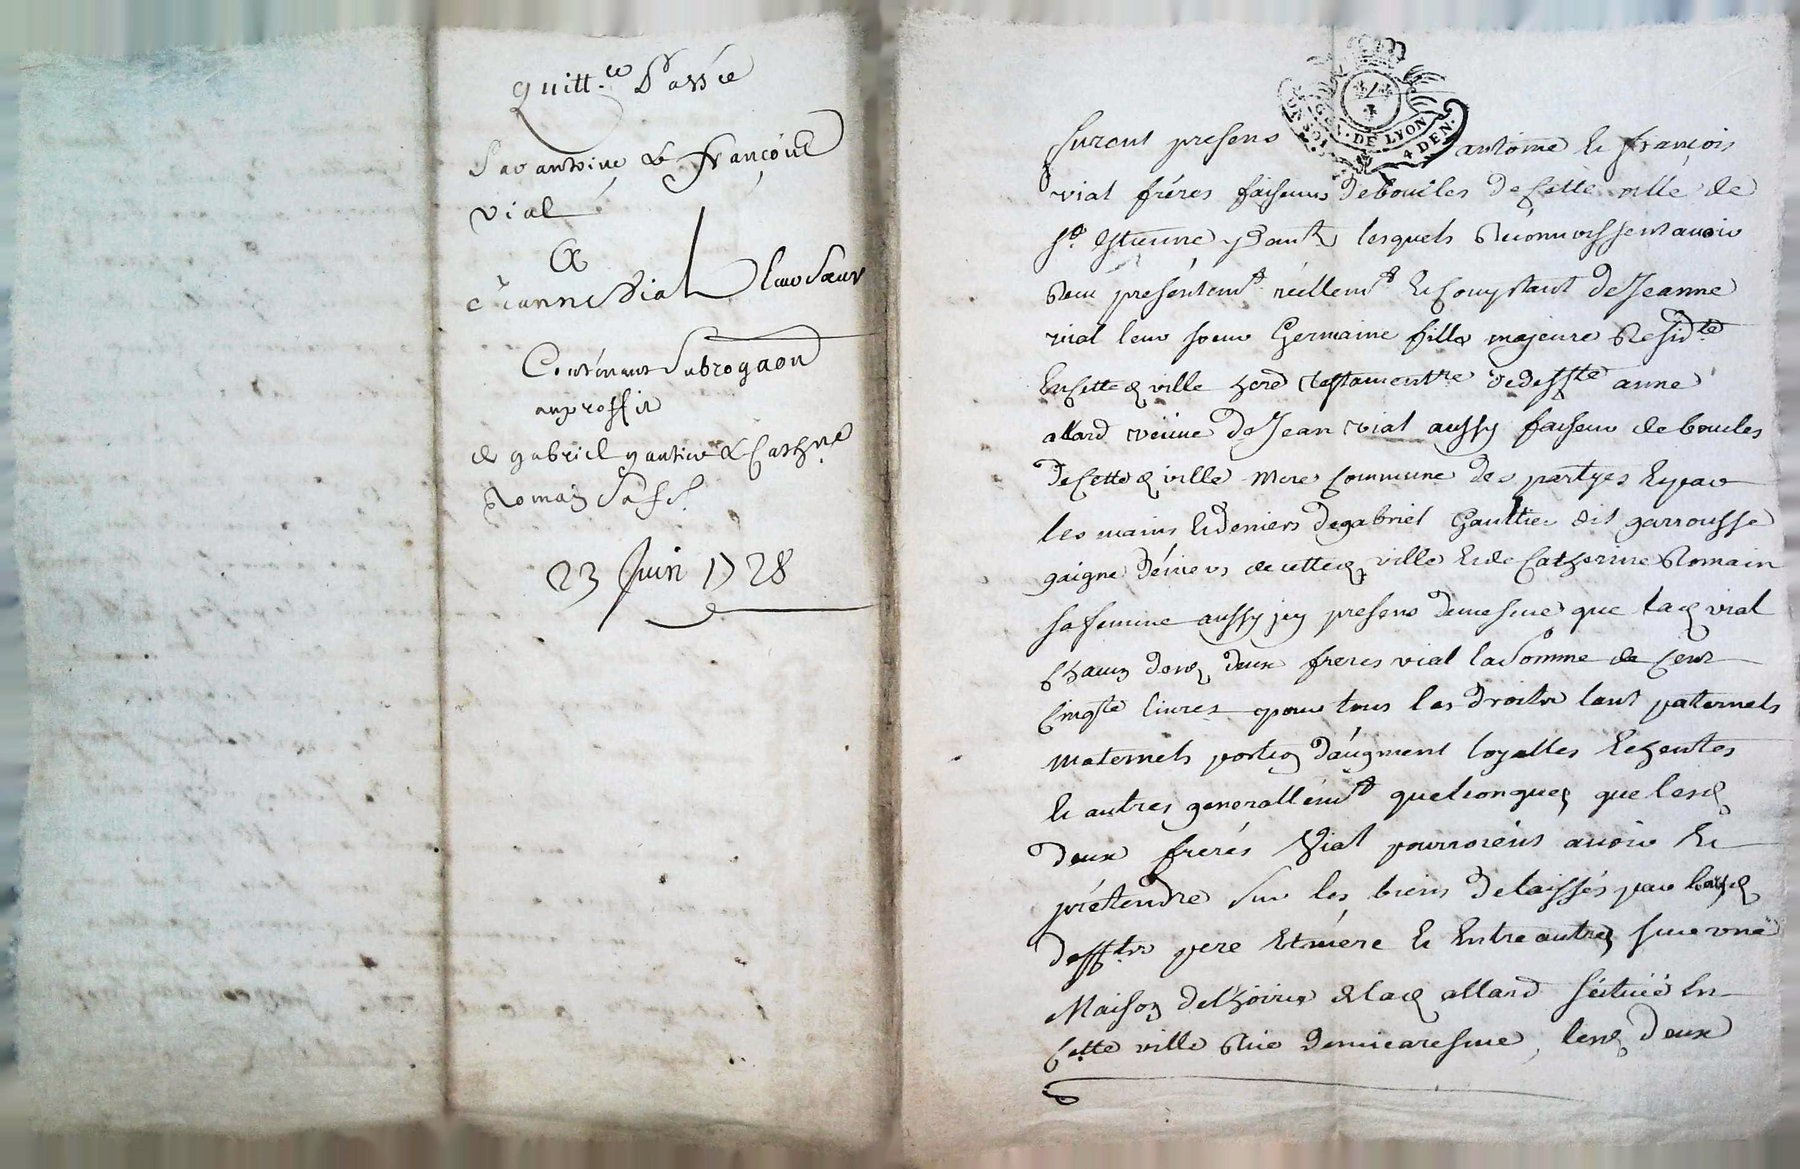 quitt.ce Passée
Par antoine & françois
vial
A
Jeanne Vial leur Sœur
Contenant Subrogaon
au proffit
de gabriel gautier & Cath.ne
Romain Sa f.e
23 Juin 1728
GEN. DE LYON
4 DEN.
furent presens antoine & françois
vial fréres faiseurs de boucles de Cette ville de
St. Estienne lesquels reconnoissent avoir
Reçu présentemt réellemt & Comptant de Jeanne
vial leur sœur Germaine fille majeure Residte
En Cette d ville hered testamentre de deffte anne
allard veuve de Jean vial aussy faiseur de boucles
de Cette d ville Mere Commune des partyes & par
les mains & deniers de gabriel Gaultier dit garrousse
gaigne déniers de cette d ville & de Catherine Romain
sa femme aussy icy presens de mesme que lad vial
Chacun desd deux freres vial la Somme de Cent
Cinqte livres pour tous les droits tant paternels
maternels portion d'augment
& autres generallemt quelconques que lesd
deux fréres Vial pourroient avoir &
prétendre Sur les biens delaissés par lesd
deffts pere Et mére & Entre autres sur une
Maison de lad allard Scituée En
Cette ville Rue de micaresme, lesd deux